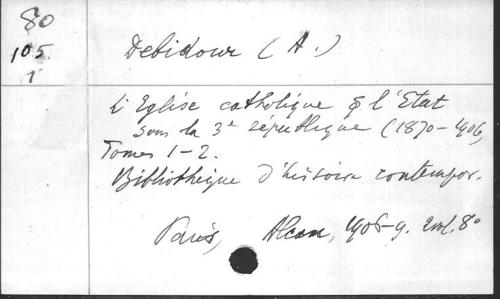 80
105.
1
Debidour (A.)
L'Eglise catholique & l'Etat
sous la 3e république (1870-1906)
Tomes 1-2.
Bibliothèque d'histoire contempor.
Paris, Alcan, 1906-9. 8°